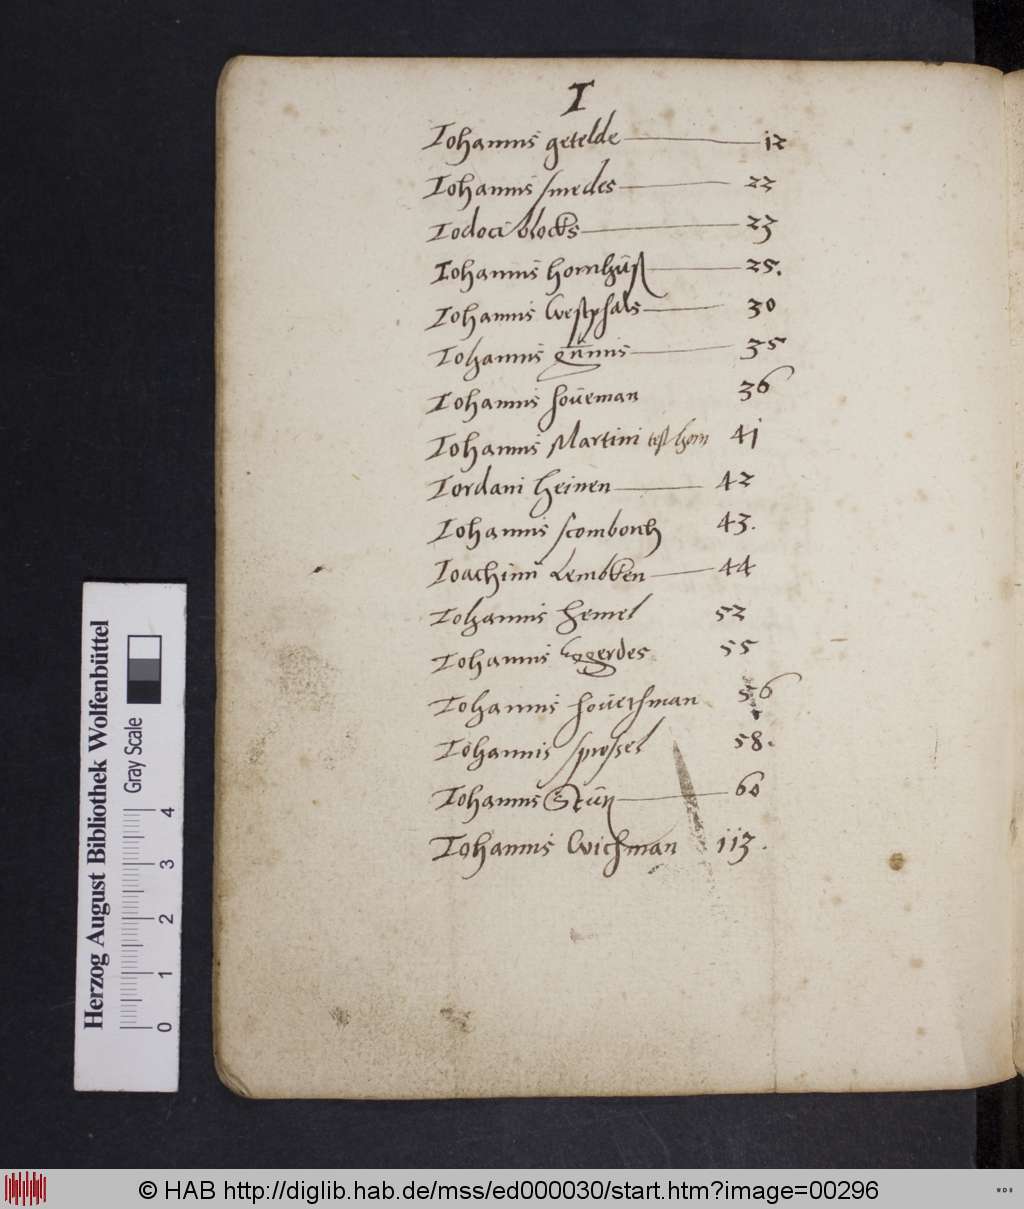 I
Iohannis getelde 12
Iohannis smedes 22
Iodoci blocks 23
Iohannis hornhüß 25.
Iohannis Westphals 30
Iohannis 35
Iohannis hoüeman 36
Iohannis Martini test horn 41
Iordani Heinen 42
Iohannis scomborch 43.
Ioachimi Lembken 44
Iohannis Hemel 52
Iohannis Eggerdes 55
Iohannis hoüeman 56
Iohannis sprossel 58.
Iohannis 60
Iohannis Wichman 113.
Herzog August Bibliothek Wolfenbüttel
Gray Scale
0 1 2 3 4
© HAB http://diglib.hab.de/mss/ed000030/start.htm?image=00296